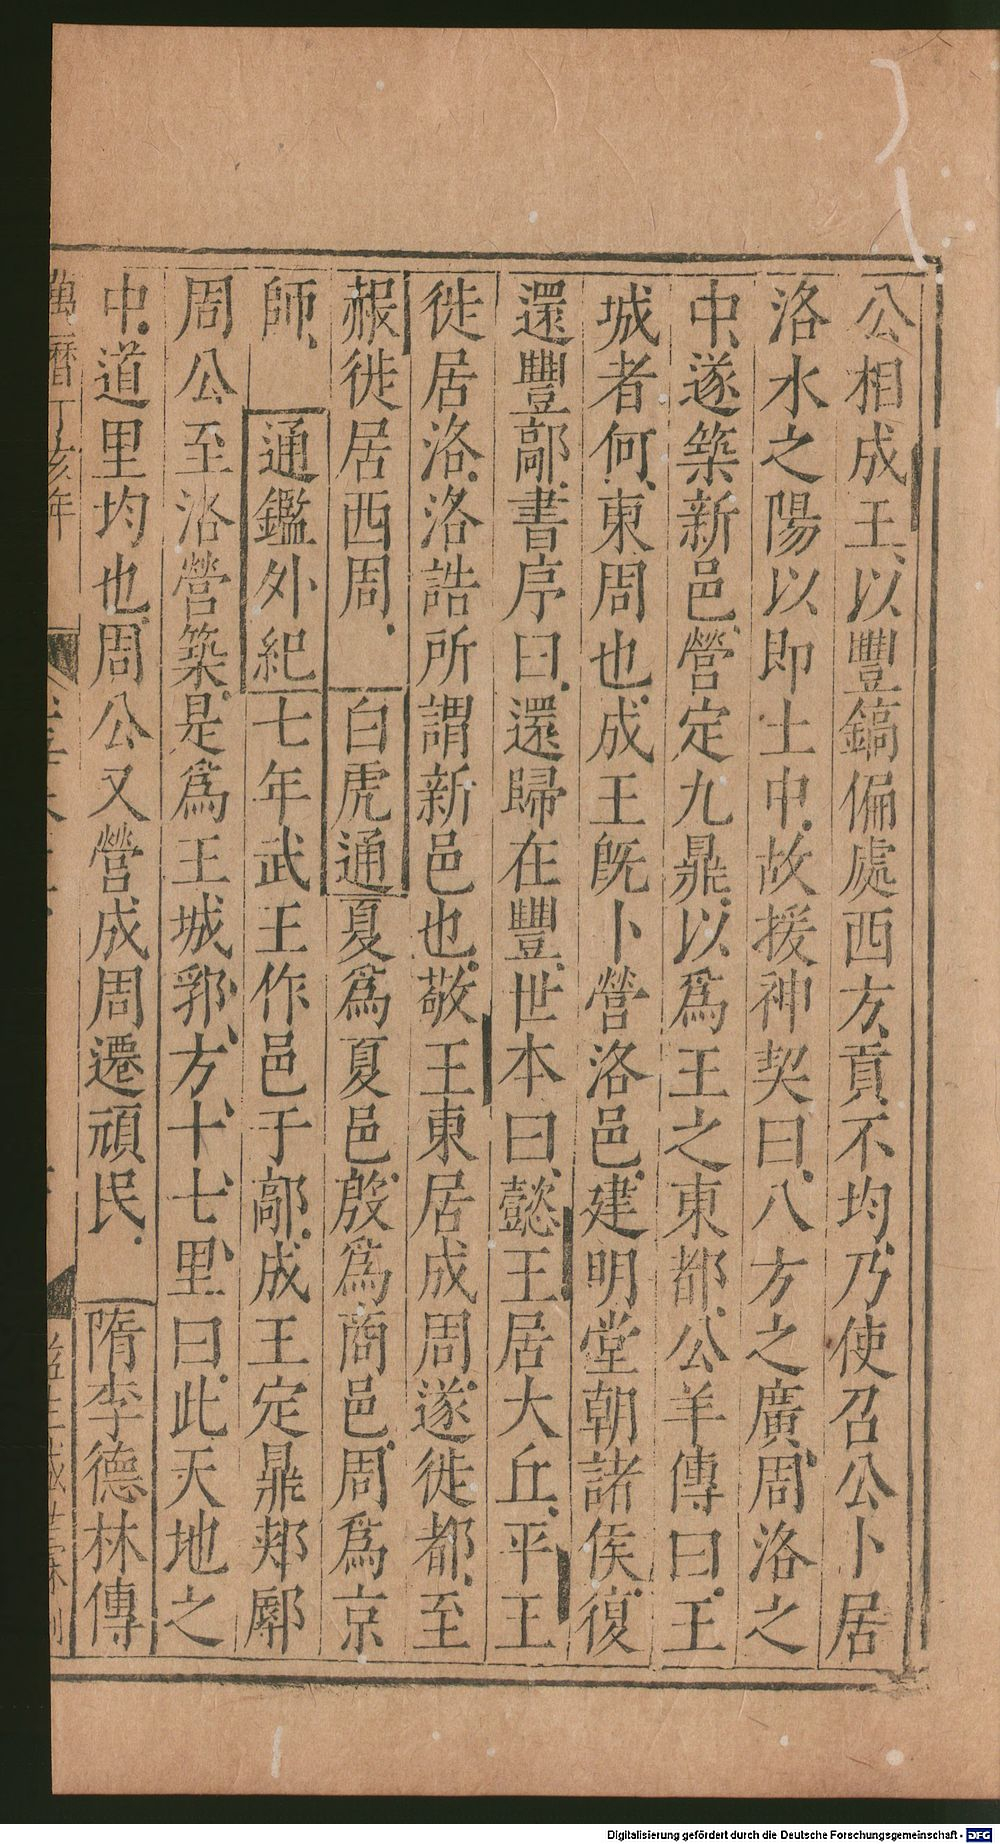 公相成王、以豐鎬偏處西方、貢不均、乃使召公卜居
洛水之陽以即土中、故援神契曰、八方之廣、周洛之
中、遂築新邑、營定九鼎、以爲王之東都、公羊傳曰、王
城者何、東周也、成王旣卜營洛邑、建明堂朝諸侯、復
還豐鄗、書序曰、還歸在豐、世本曰、懿王居大丘、平王
徙居洛、洛誥所謂新邑也、敬王東居成周、遂徙都、至
赧徙居西周、白虎通夏爲夏邑、殷爲商邑、周爲京
師、通鑑外紀七年武王作邑于鄗、成王定鼎郟鄏
周公至洛營築、是爲王城郛、方、十、七、里、曰、此天地之
中、道里均也、周公又營成周遷頑民、隋李德林傳
萬曆丁亥年
Digitalisierung gefördert durch die Deutsche Forschungsgemeinschaft - DFG